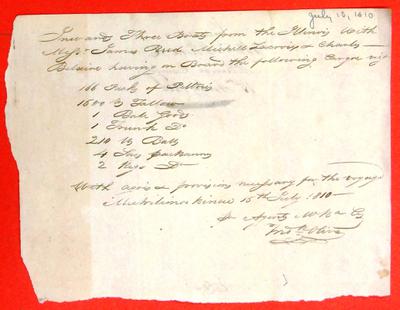 July 15, 1810
and Three Boats from the Illinois With
Mess. James Reed Michell Lacroix & Charles
having on Board the following Cargoe viz
166 Packs of Peltries
1600 lb Tallow
1 Bale Goods
1 Trunk Do
210 lb
4
2 Kegs Do
With & provisions necessary for the voyage
Michilimackinac 15th July 1810
Agents